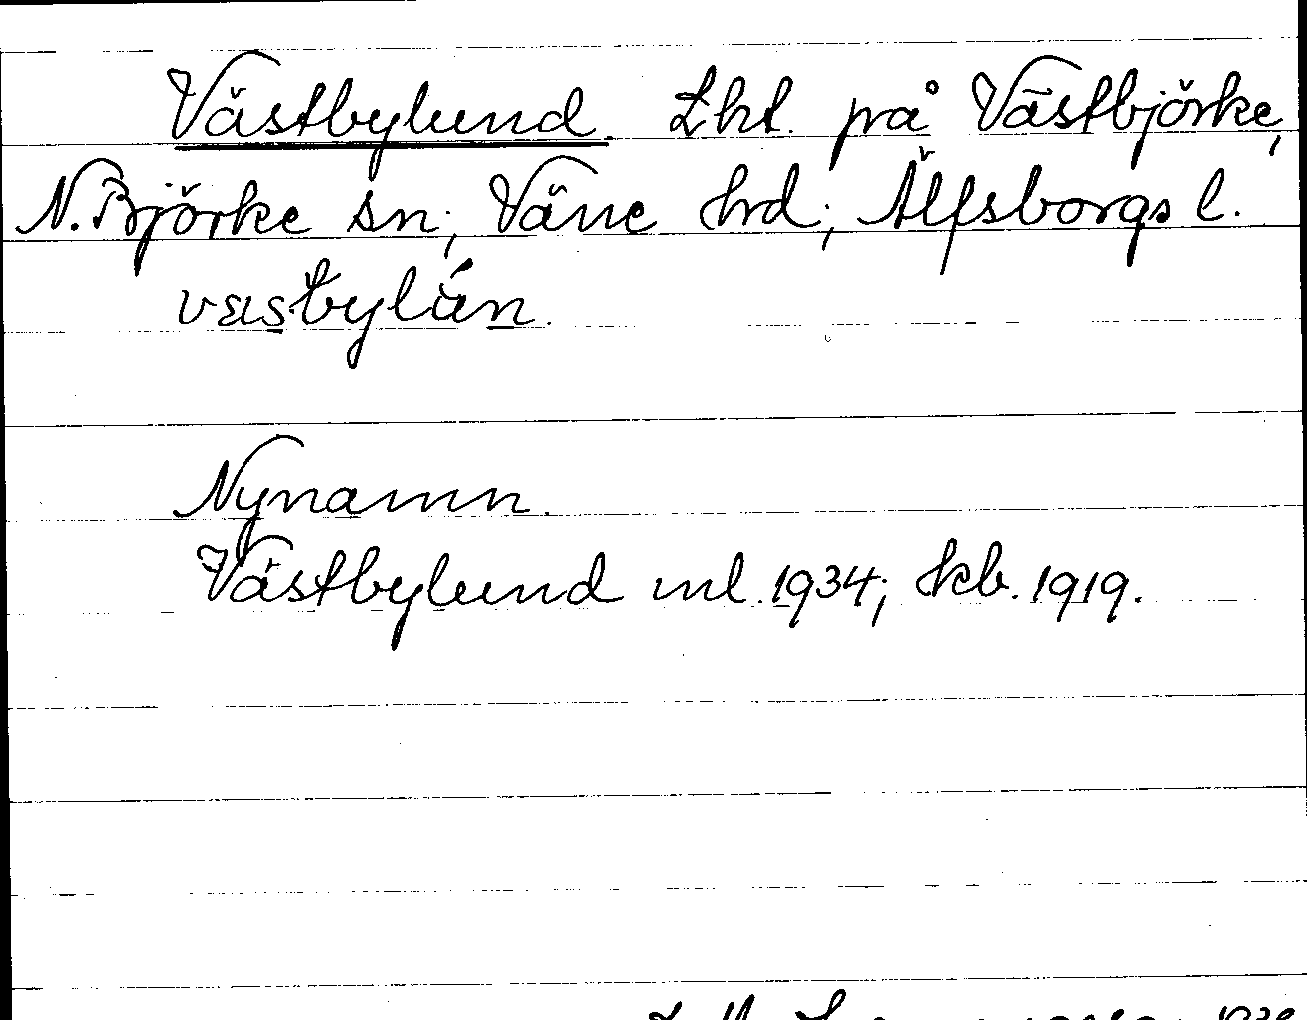 Västbylund. Lht. på Västbjörke,
N. Björke sn; Väne hrd; Älfsborgs l.
Nynamn.
Västbylund ml. 1934; kb. 1919.